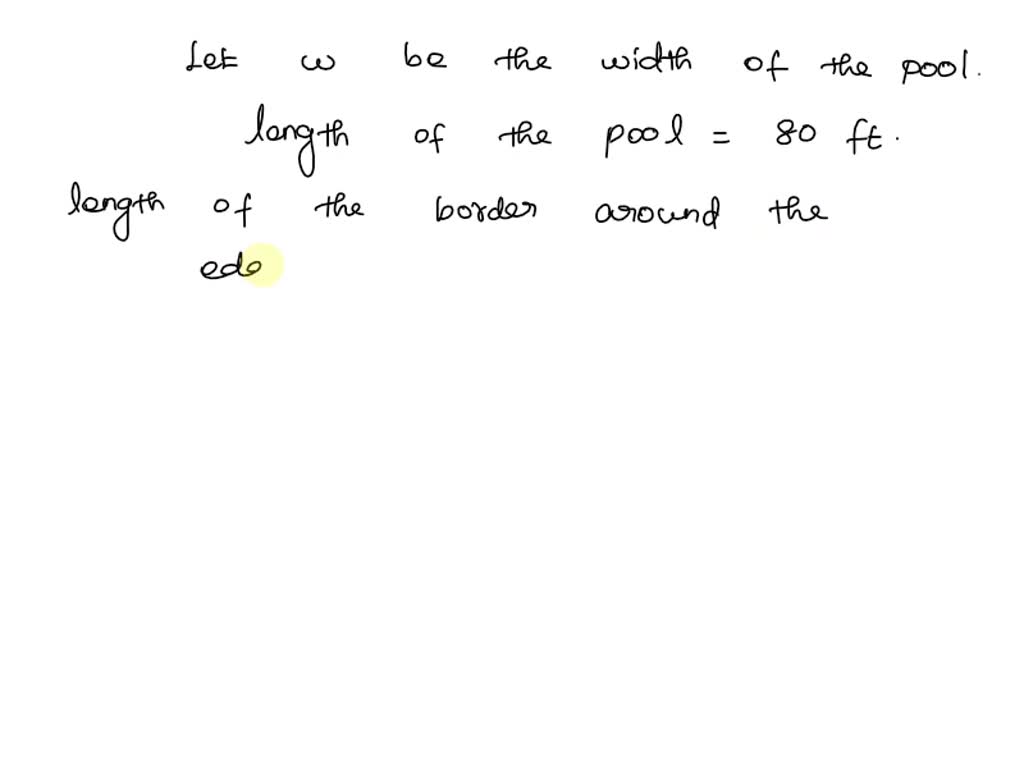 Let w be the width of the pool.
length of the pool = 80 ft.
length of the border around the
edo